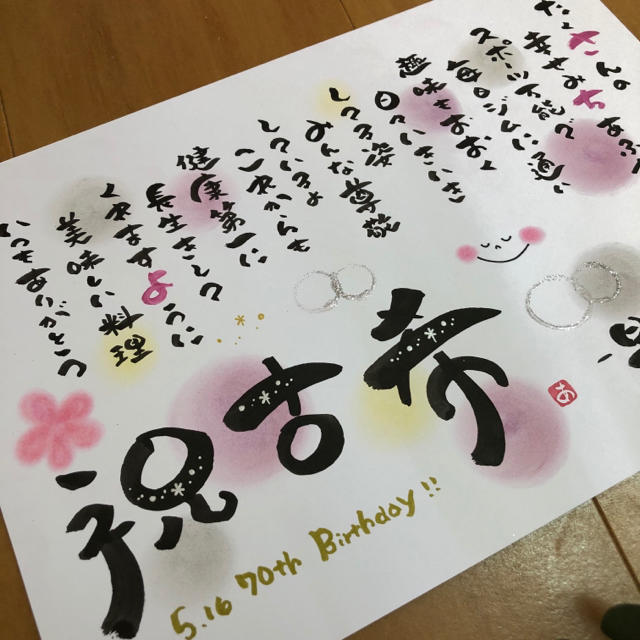 たくさんの
幸せ
スポーツ万能で
毎日ジムに通い
趣味もおおく
日々いきいき
してる姿
みんな尊敬
しているよ
これからも
健康第一に
長生きして
くれますように
美味しい料理
いつもありがとう
祝古希
5.16 70th Birthday!!